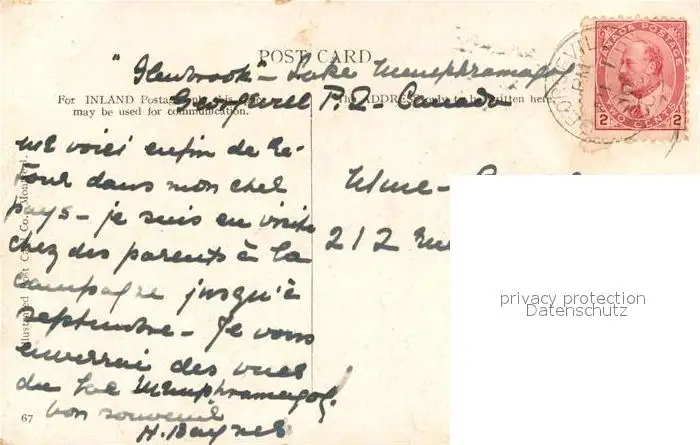 POST CARD
"Glenbrook" - Lake Memphramagog
Georgeville P.Q - Canada
For INLAND Postage only this space may be used for communication.
The ADDRESS only to be written here.
me voici enfin de re-
tour dans mon cher
pays - je suis en visite
chez des parents à la
campagne jusqu'à
Septembre - Je vous
enverrai des vues
du Lac Memphramagog!
bon souvenir
H.
67
Illustrated Post Card Co., Montreal.
Mme
212 Rue
CANADA POSTAGE
2 2
TWO CENTS
privacy protection
Datenschutz